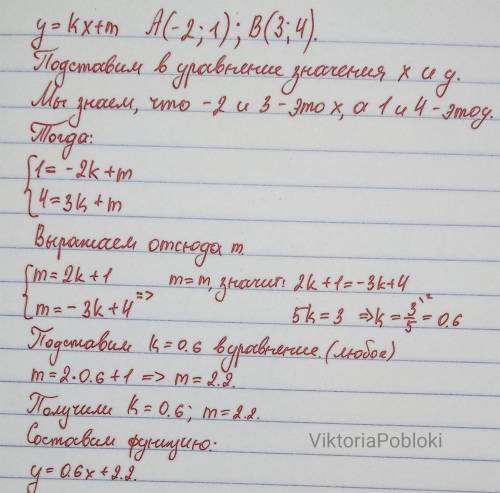 y=kx+m A(-2;1); B(3;4).
Подставим в уравнение значения x и y.
Мы знаем, что -2 и 3 - это x, а 1 и 4 - это y.
Тогда:
{1=-2k+m
{4=3k+m
Выражаем отсюда m.
{m=2k+1 => m=m, значит: 2k+1=-3k+4
{m=-3k+4 5k=3 =>k=3/5=0.6
Подставим k=0.6 в уравнение. (любое)
m=2·0.6+1 => m=2.2.
Получили k=0.6; m=2.2.
Составим функцию:
ViktoriaPobloki
y=0.6x+2.2.